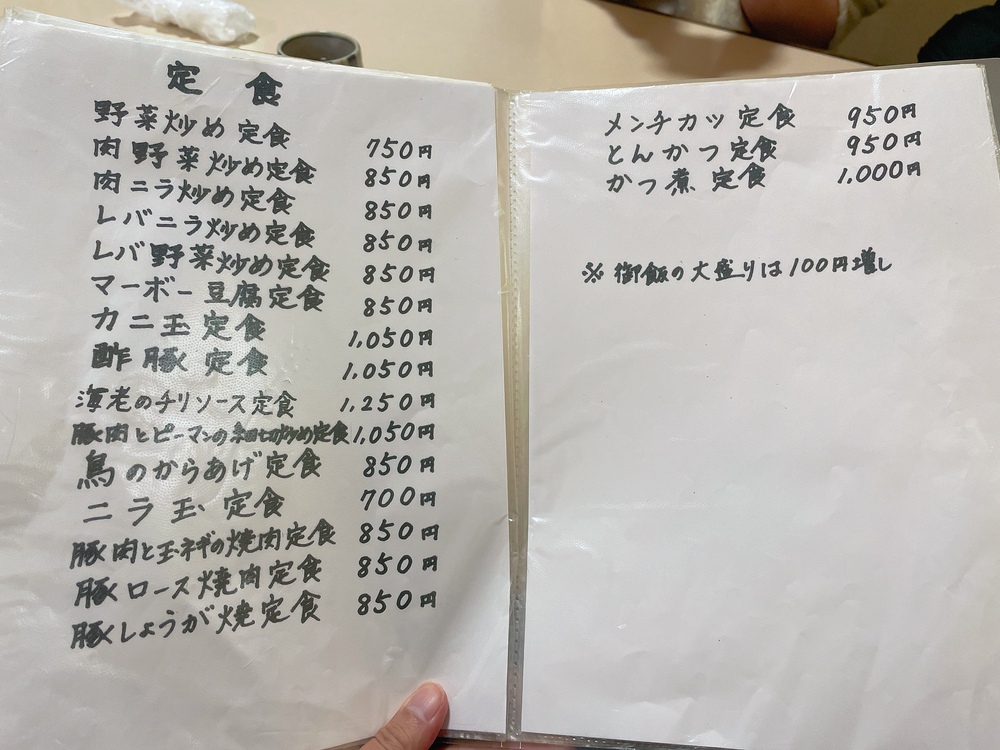 定食
野菜炒め定食 750円
肉野菜炒め定食 850円
肉ニラ炒め定食 850円
レバニラ炒め定食 850円
レバ野菜炒め定食 850円
マーボー豆腐定食 850円
カニ玉定食 1,050円
酢豚定食 1,050円
海老のチリソース定食 1,250円
豚肉とピーマンの細切炒め定食 1,050円
鳥のからあげ定食 850円
ニラ玉定食 700円
豚肉と玉ネギの焼肉定食 850円
豚ロース焼肉定食 850円
豚しょうが焼定食 850円
メンチカツ定食 950円
とんかつ定食 950円
かつ煮定食 1,000円
※御飯の大盛りは100円増し